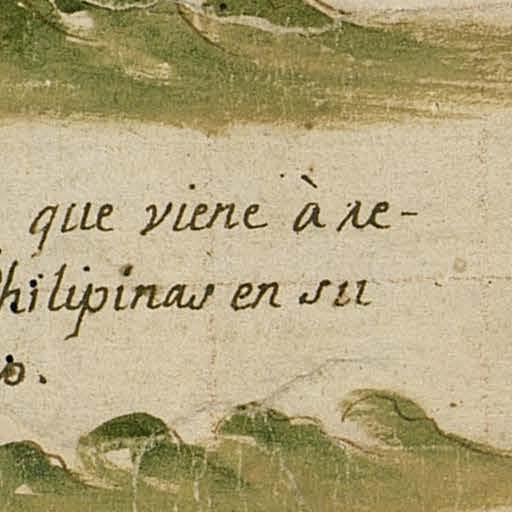 que viene à re-
hilipinas en su
o.